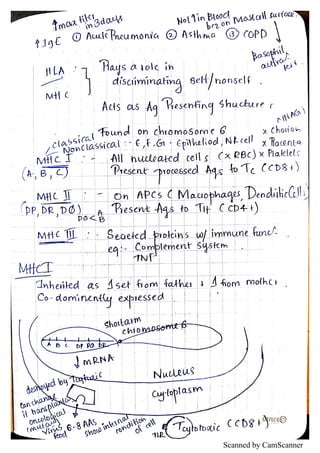 ↑ max titer in 3 days
Not ↑ in Blood
bcz on Mast cell surface,
Basophil
↑ IgE ① Acute Pneumonia ② Asthma ③ COPD
HLA
MHC
Plays a role in
discriminating self/nonself.
Acts as Ag Presenting structure,
(HLAG)
Found on chromosome 6
x Chorion
classical
Nonclassical :- E, F, G :- Epithelioid, NK cell
x Placenta
MHC I :- All nucleated cells (x RBC) x Platelets
(A, B, C) Present processed Ags to Tc (CD8+)
MHC II :- On APCs (Macrophages, Dendritic Cells)
(DP, DR, DQ) Present Ags to TH (CD4+)
A
B
MHC III :- Secreted proteins w/ immune func.
eg:- Complement system
TNF
MHC I
Inherited as 1 set from father & 1 from mother.
Co-dominently expressed
short arm
chromosome 6
A B C DP DQ DR
↓ mRNA
Nucleus
Cytoplasm
destroyed by
can change
if transplanted
oncological
mutated
virus, 6-8 AAs
show internal
condition
of cell
TCR
Tcytotoxic (CD8+)
Scanned by CamScanner